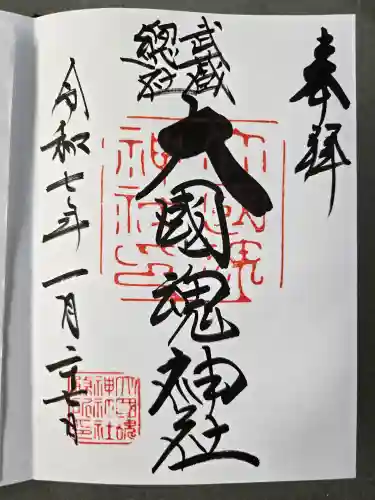 奉拝
武蔵
総社
大國魂神社
令和七年一月二十七日